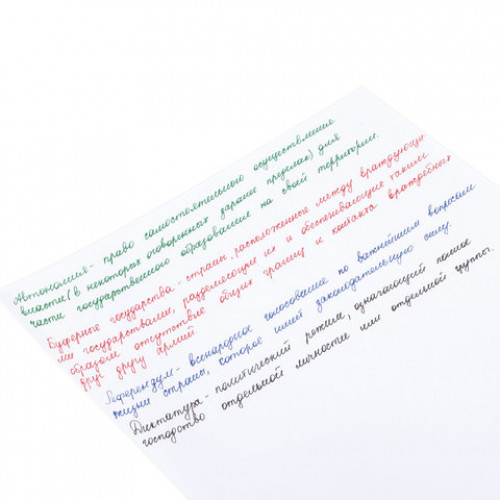 Автономия - право самостоятельного осуществления
власти (в некоторых оговоренных заранее пределах) для
части государственного образования на своей территории.
Буферные государства - страны, расположенные между враждующи-
ми государствами, разделяющие их и обеспечивающие таким
образом отсутствие общих границ и контакта враждебных
друг другу армий.
Референдум - всенародное голосование по важнейшим вопросам
жизни страны, которое имеет законодательную силу.
Диктатура - политический режим, означающий полное
господство отдельной личности или отдельной группы.